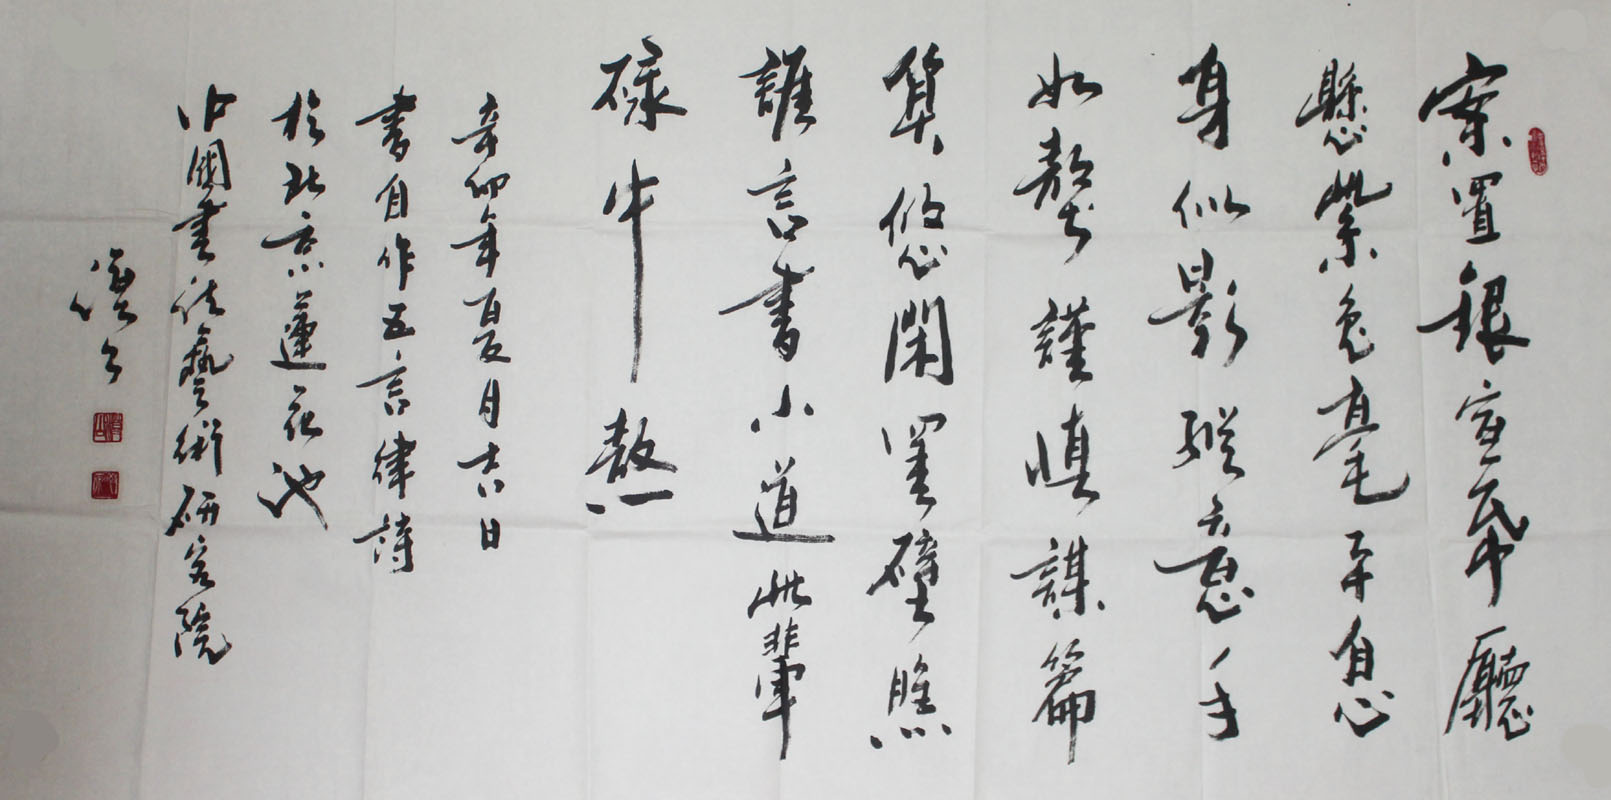 案置銀宣帋廳
懸紫兔毫平息
身似影縱意手
如螯謹慎謀篇
算悠閑罣壁瞧
誰言書小道此輩
碌中熬
辛卯年夏月吉日
書自作五言律詩
於北京蓮花池
中國書法藝術研究院